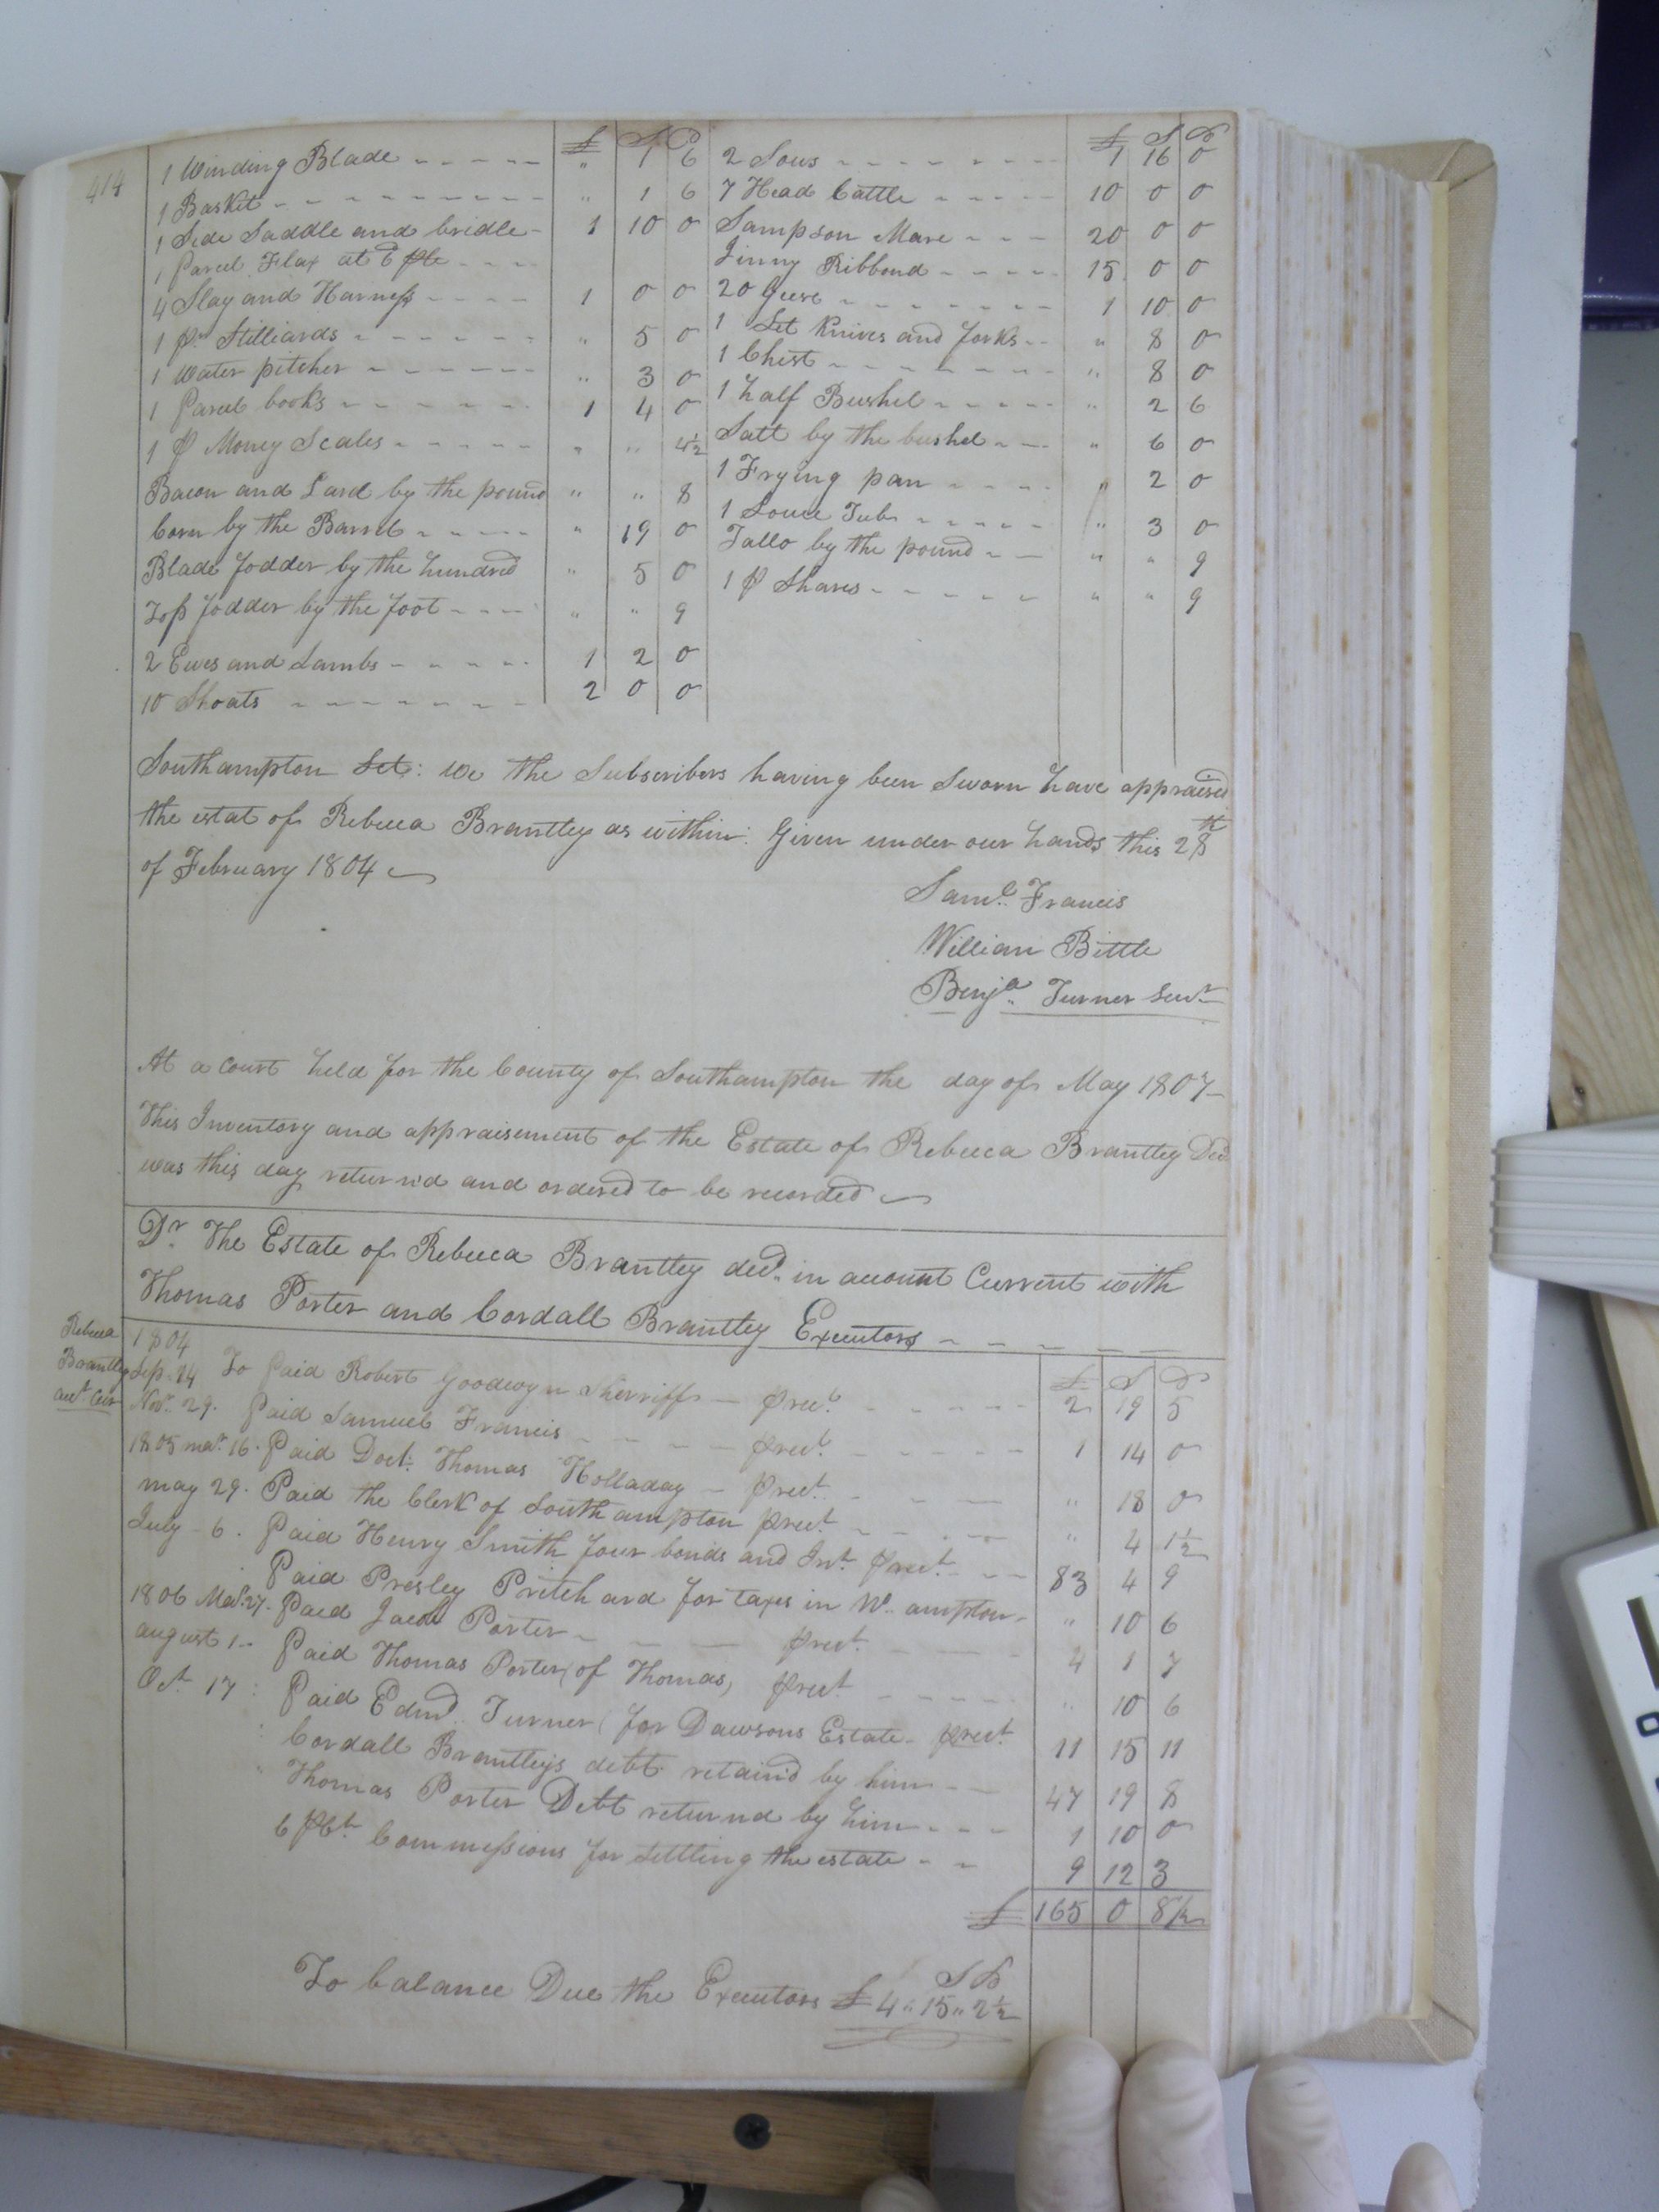 414
£ S D
1 Winding Blade - - - - - " 1 6
1 Basket - - - - - - - - " 1 6
1 Side Saddle and bridle - 1 10 0
1 Parcel Flax at 6d ℔ - - -
4 Slay and Harness - - - - 1 0 0
1 pr Stilliards - - - - - - " 5 0
1 water pitcher - - - - - - " 3 0
1 Parcel books - - - - - - 1 4 0
1 p Money Scales - - - - - " " 4½
Bacon and Lard by the pound " " 8
Corn by the Barrel - - - - " 19 0
Blade fodder by the hundred " 5 0
Top fodder by the foot - - - " " 9
2 Ewes and Lambs - - - - - 1 2 0
10 Shoats - - - - - - - 2 0 0
£ S D
2 Sows - - - - - - - - 1 16 0
7 Head Cattle - - - - - 10 0 0
Sampson Mare - - - 20 0 0
Jinny Ribbond - - - - - 15 0 0
20 Geese - - - - - - - 1 10 0
1 Set Knives and forks - - " 8 0
1 Chest - - - - - - - - " 8 0
1 half Bushel - - - - - " 2 6
Salt by the bushel - - - " 6 0
1 Frying pan - - - - " 2 0
1 Souce Tub - - - - - " 3 0
Tallo by the pound - - " " 9
1 p Shares - - - - - - " " 9
Southampton Sct: We the Subscribers having been Sworn have appraised
the estat of Rebecca Brantley as within: Given under our hands this 28th
of February 1804
Saml. Francis
William Bittle
Benja. Turner Senr
At a Court held for the County of Southampton the day of May 1807-
This Inventory and appraisement of the Estate of Rebecca Brantley Decd
was this day return'd and ordered to be recorded
Dr The Estate of Rebecca Brantley decd. in account Current with
Thomas Porter and Cordall Brantley Executors - - - - -
Rebecca
Brantley
acct Curr
1804 £ S D
Sep. 14 To Paid Robert Goodwyn Sherriff - prect. - - - - - 2 19 5
Novr. 29. Paid Samuel Francis - - - - prect. - - - - - 1 14 0
1805 mar. 16. Paid Doct. Thomas Holladay - prect. - - - - " 18 0
may 29. Paid the Clerk of Southampton prect. - - - - " 4 1½
July - 6. Paid Henry Smith four bonds and Int. prect. - - 83 4 9
Paid Presley Pritchard for taxes in N. ampton - " 10 6
1806 Mar. 27. Paid Jacob Porter - - - prect. - - - - 4 1 7
august 1 - Paid Thomas Porter (of Thomas) prect. - - - - " 10 6
Oct. 17: Paid Edmd. Turner (for Dawsons Estate - prect 11 15 11
Cordall Brantleys debt retain'd by him - - 47 19 8
Thomas Porter Debt returnd by him - - - 1 10 0
6 ⅌Ct. Commissions for settling the estate - - 9 12 3
£ 165 0 8½
To balance Due the Executors £ 4 " 15 " 2½
S D